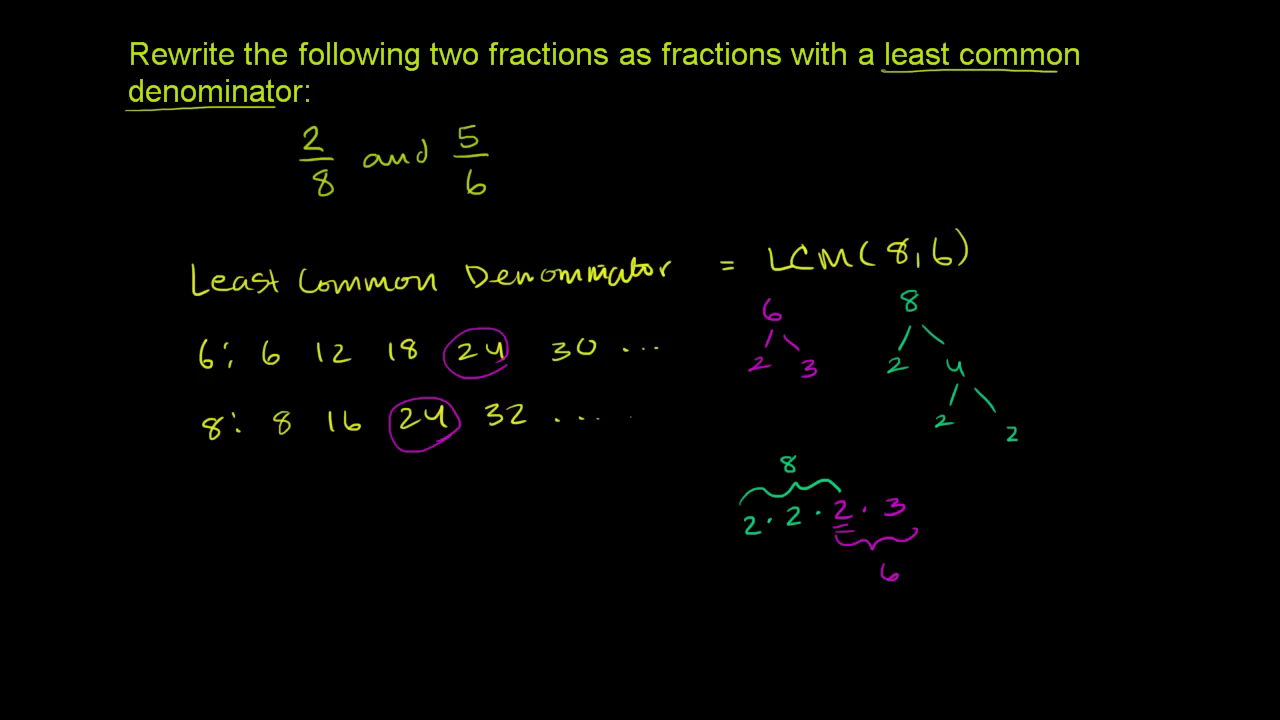 Rewrite the following two fractions as fractions with a least common
denominator:
2/8 and 5/6
Least Common Denominator = LCM(8,6)
6: 6 12 18 24 30 ...
8: 8 16 24 32 ....
6
2 3
8
2 4
2 2
8
2 · 2 · 2 · 3
6